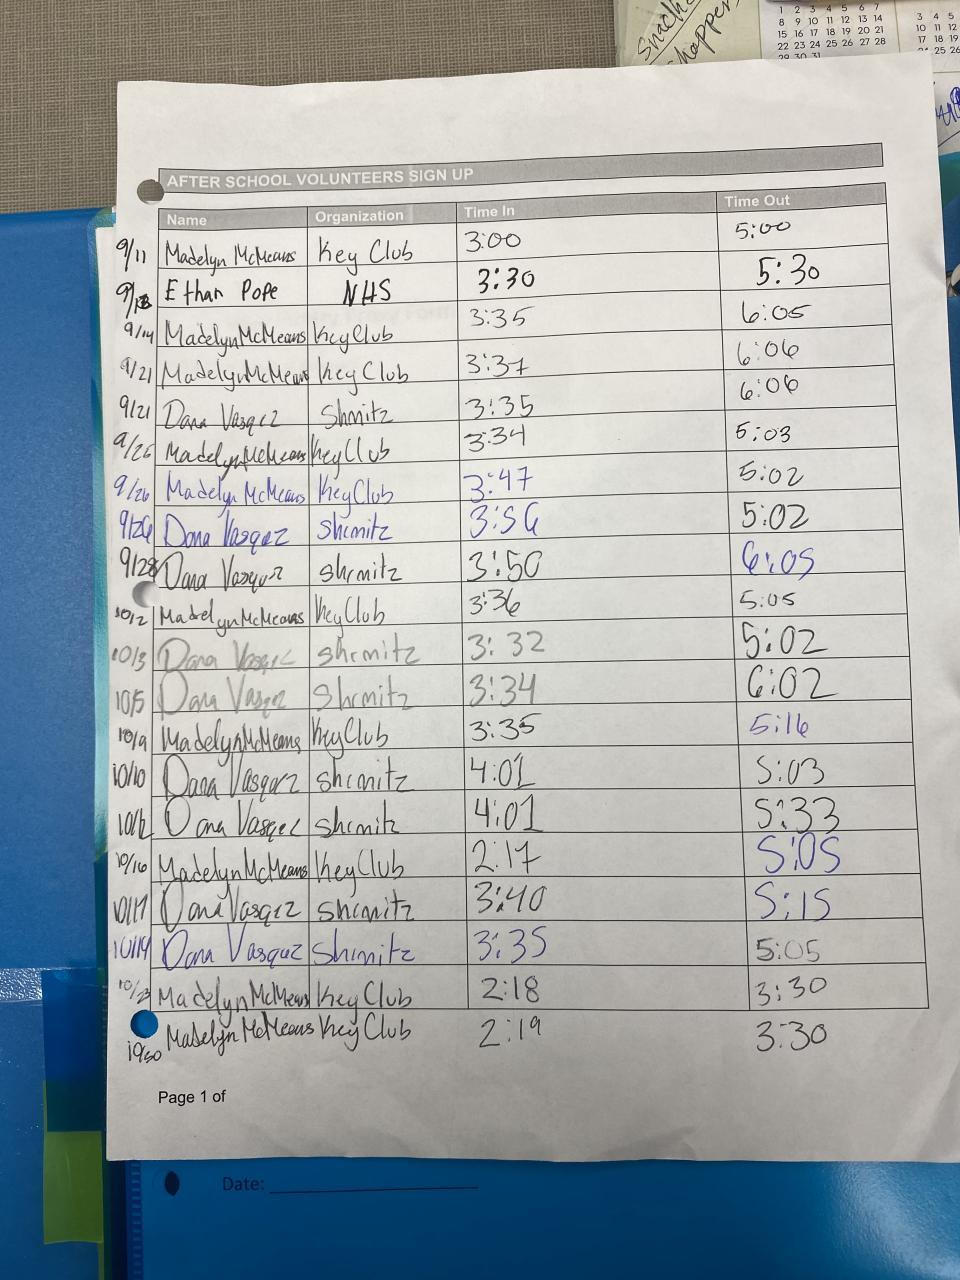 Snack
Shapper
1 2 3 4 5 6 7
8 9 10 11 12 13 14
15 16 17 18 19 20 21
22 23 24 25 26 27 28
29 30 31
3 4 5
10 11 12
17 18 19
25 26
AFTER SCHOOL VOLUNTEERS SIGN UP
Name Organization Time In Time Out
9/11 Madelyn McMeans Key Club 3:00 5:00
Ethan Pope NHS 3:30 5:30
9/14 Madelyn McMeans Key Club 3:35 6:05
9/21 Madelyn McMeans Key Club 3:37 6:06
9/21 Dana Vasqez Shmitz 3:35 6:06
9/25 Madelyn McMeans Key Club 3:34 5:03
9/26 Madelyn McMeans Key Club 3:47 5:02
9/26 Dana Vasqez Shemitz 3:56 5:02
9/28 Dana Vasquez Shemitz 3:50 6:05
10/2 Madelyn McMeans Key Club 3:36 5:05
10/3 Dana Vasqez Shemitz 3:32 5:02
10/5 Dana Vasqez Shemitz 3:34 6:02
10/9 Madelyn McMeans Key Club 3:35 5:16
10/10 Dana Vasquez Shemitz 4:01 5:03
10/12 Dana Vasqez Shemitz 4:01 5:33
10/16 Madelyn McMeans Key Club 2:17 5:05
10/17 Dana Vasqez Shemitz 3:40 5:15
10/19 Dana Vasquez Shemitz 3:35 5:05
10/23 Madelyn McMeans Key Club 2:18 3:30
10/30 Madelyn McMeans Key Club 2:19 3:30
Page 1 of
Date: